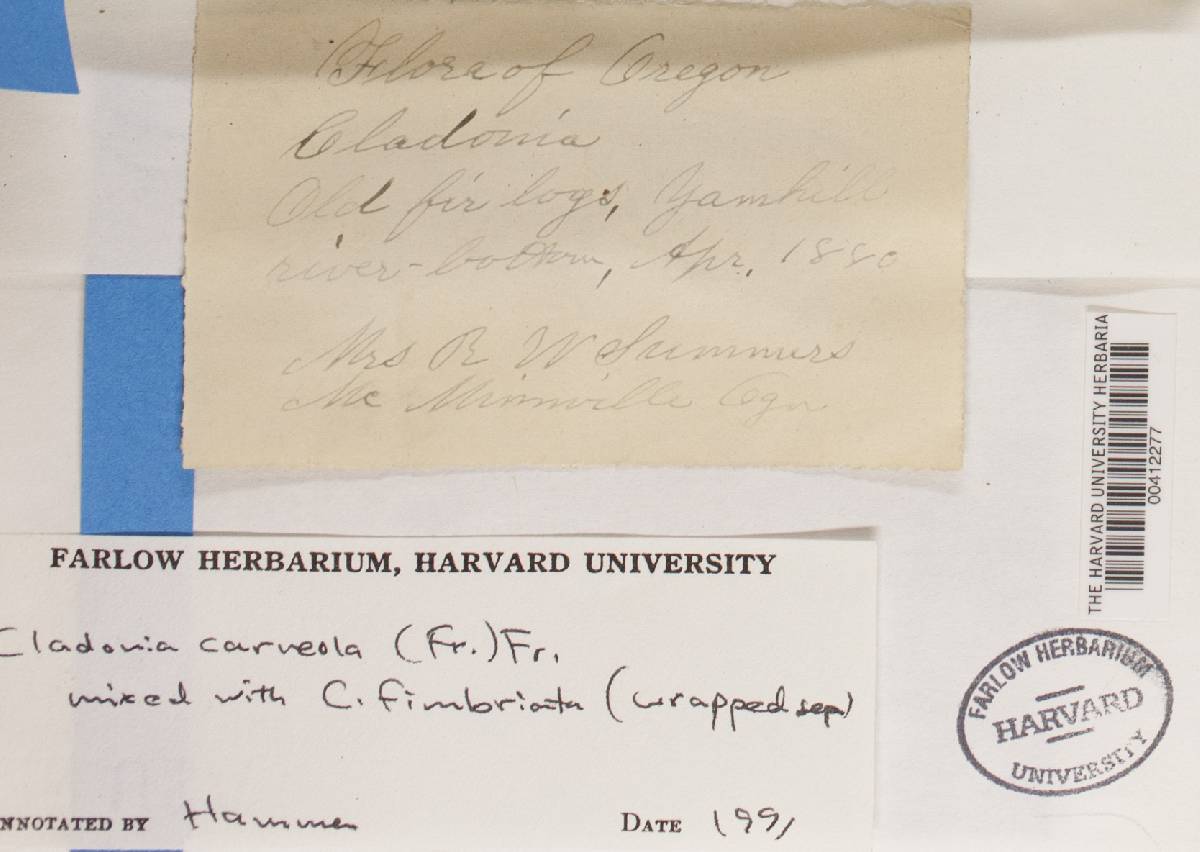 Flora of Oregon
Cladonia
Old fir logs, Yamhill
river-bottom, Apr. 1880
Mrs R W Summers
Mc Minnville Ogn.
THE HARVARD UNIVERSITY HERBARIA
00412277
FARLOW HERBARIUM, HARVARD UNIVERSITY
Cladonia carneola (Fr.) Fr.
mixed with C. fimbriata (wrapped sep)
NNOTATED BY Hammer
DATE 1991
FARLOW HERBARIUM
HARVARD
UNIVERSITY